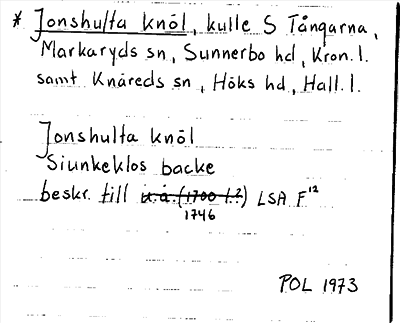 * Jonshulta knöl, kulle S Tångarna,
Markaryds sn, Sunnerbo hd, Kron. l.
samt Knäreds sn, Höks hd, Hall. l.
Jonshulta knöl
Siunkeklos backe
beskr. till u.å. (1700-t.?) LSA F¹²
1746
POL 1973